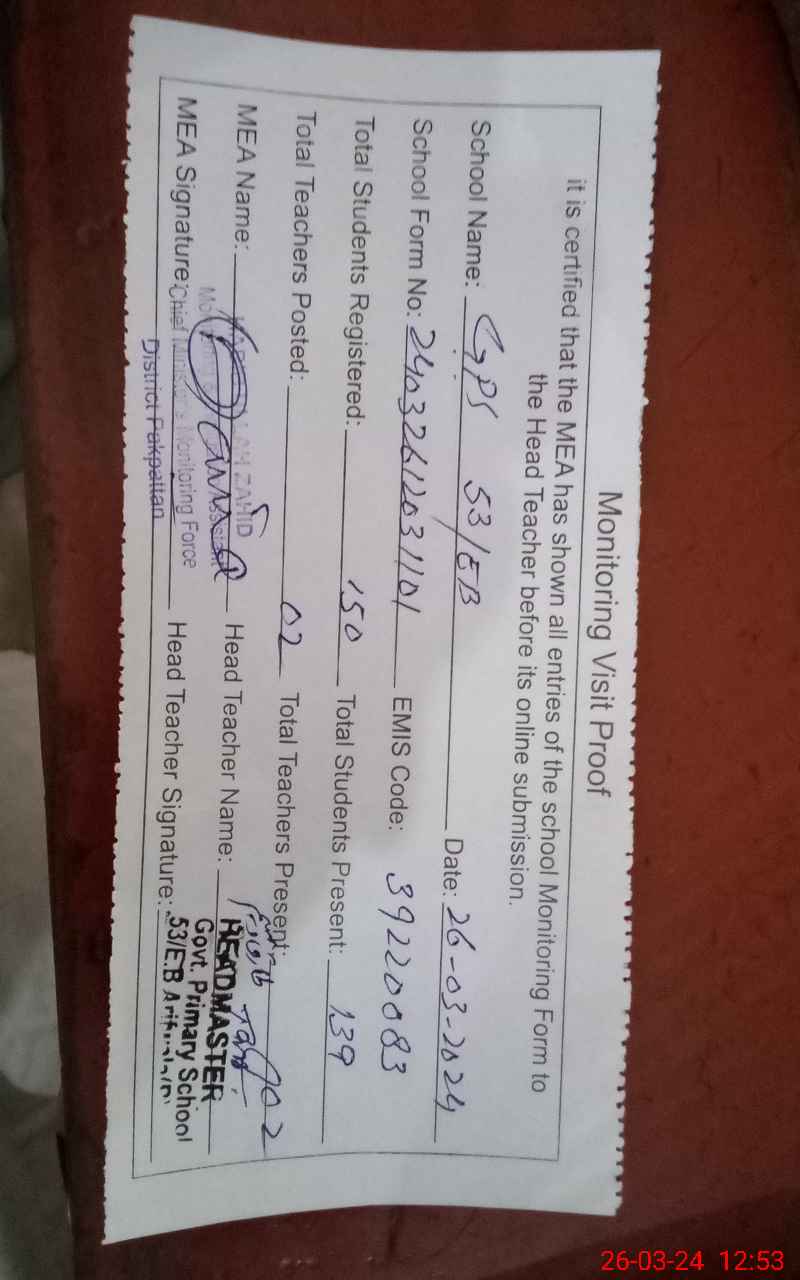 Monitoring Visit Proof
it is certified that the MEA has shown all entries of the school Monitoring Form to
the Head Teacher before its online submission.
School Name: GPS 53/EB Date: 26-03-2024
School Form No: EMIS Code: 39220083
Total Students Registered: 150 Total Students Present: 139
Total Teachers Posted: 02 Total Teachers Present: 02
MEA Name: ZAHID Head Teacher Name:
MEA Signature: Chief Minister's Monitoring Force Head Teacher Signature:
District Pakpattan
HEADMASTER
Govt. Primary School
53/E.B
26-03-24 12:53